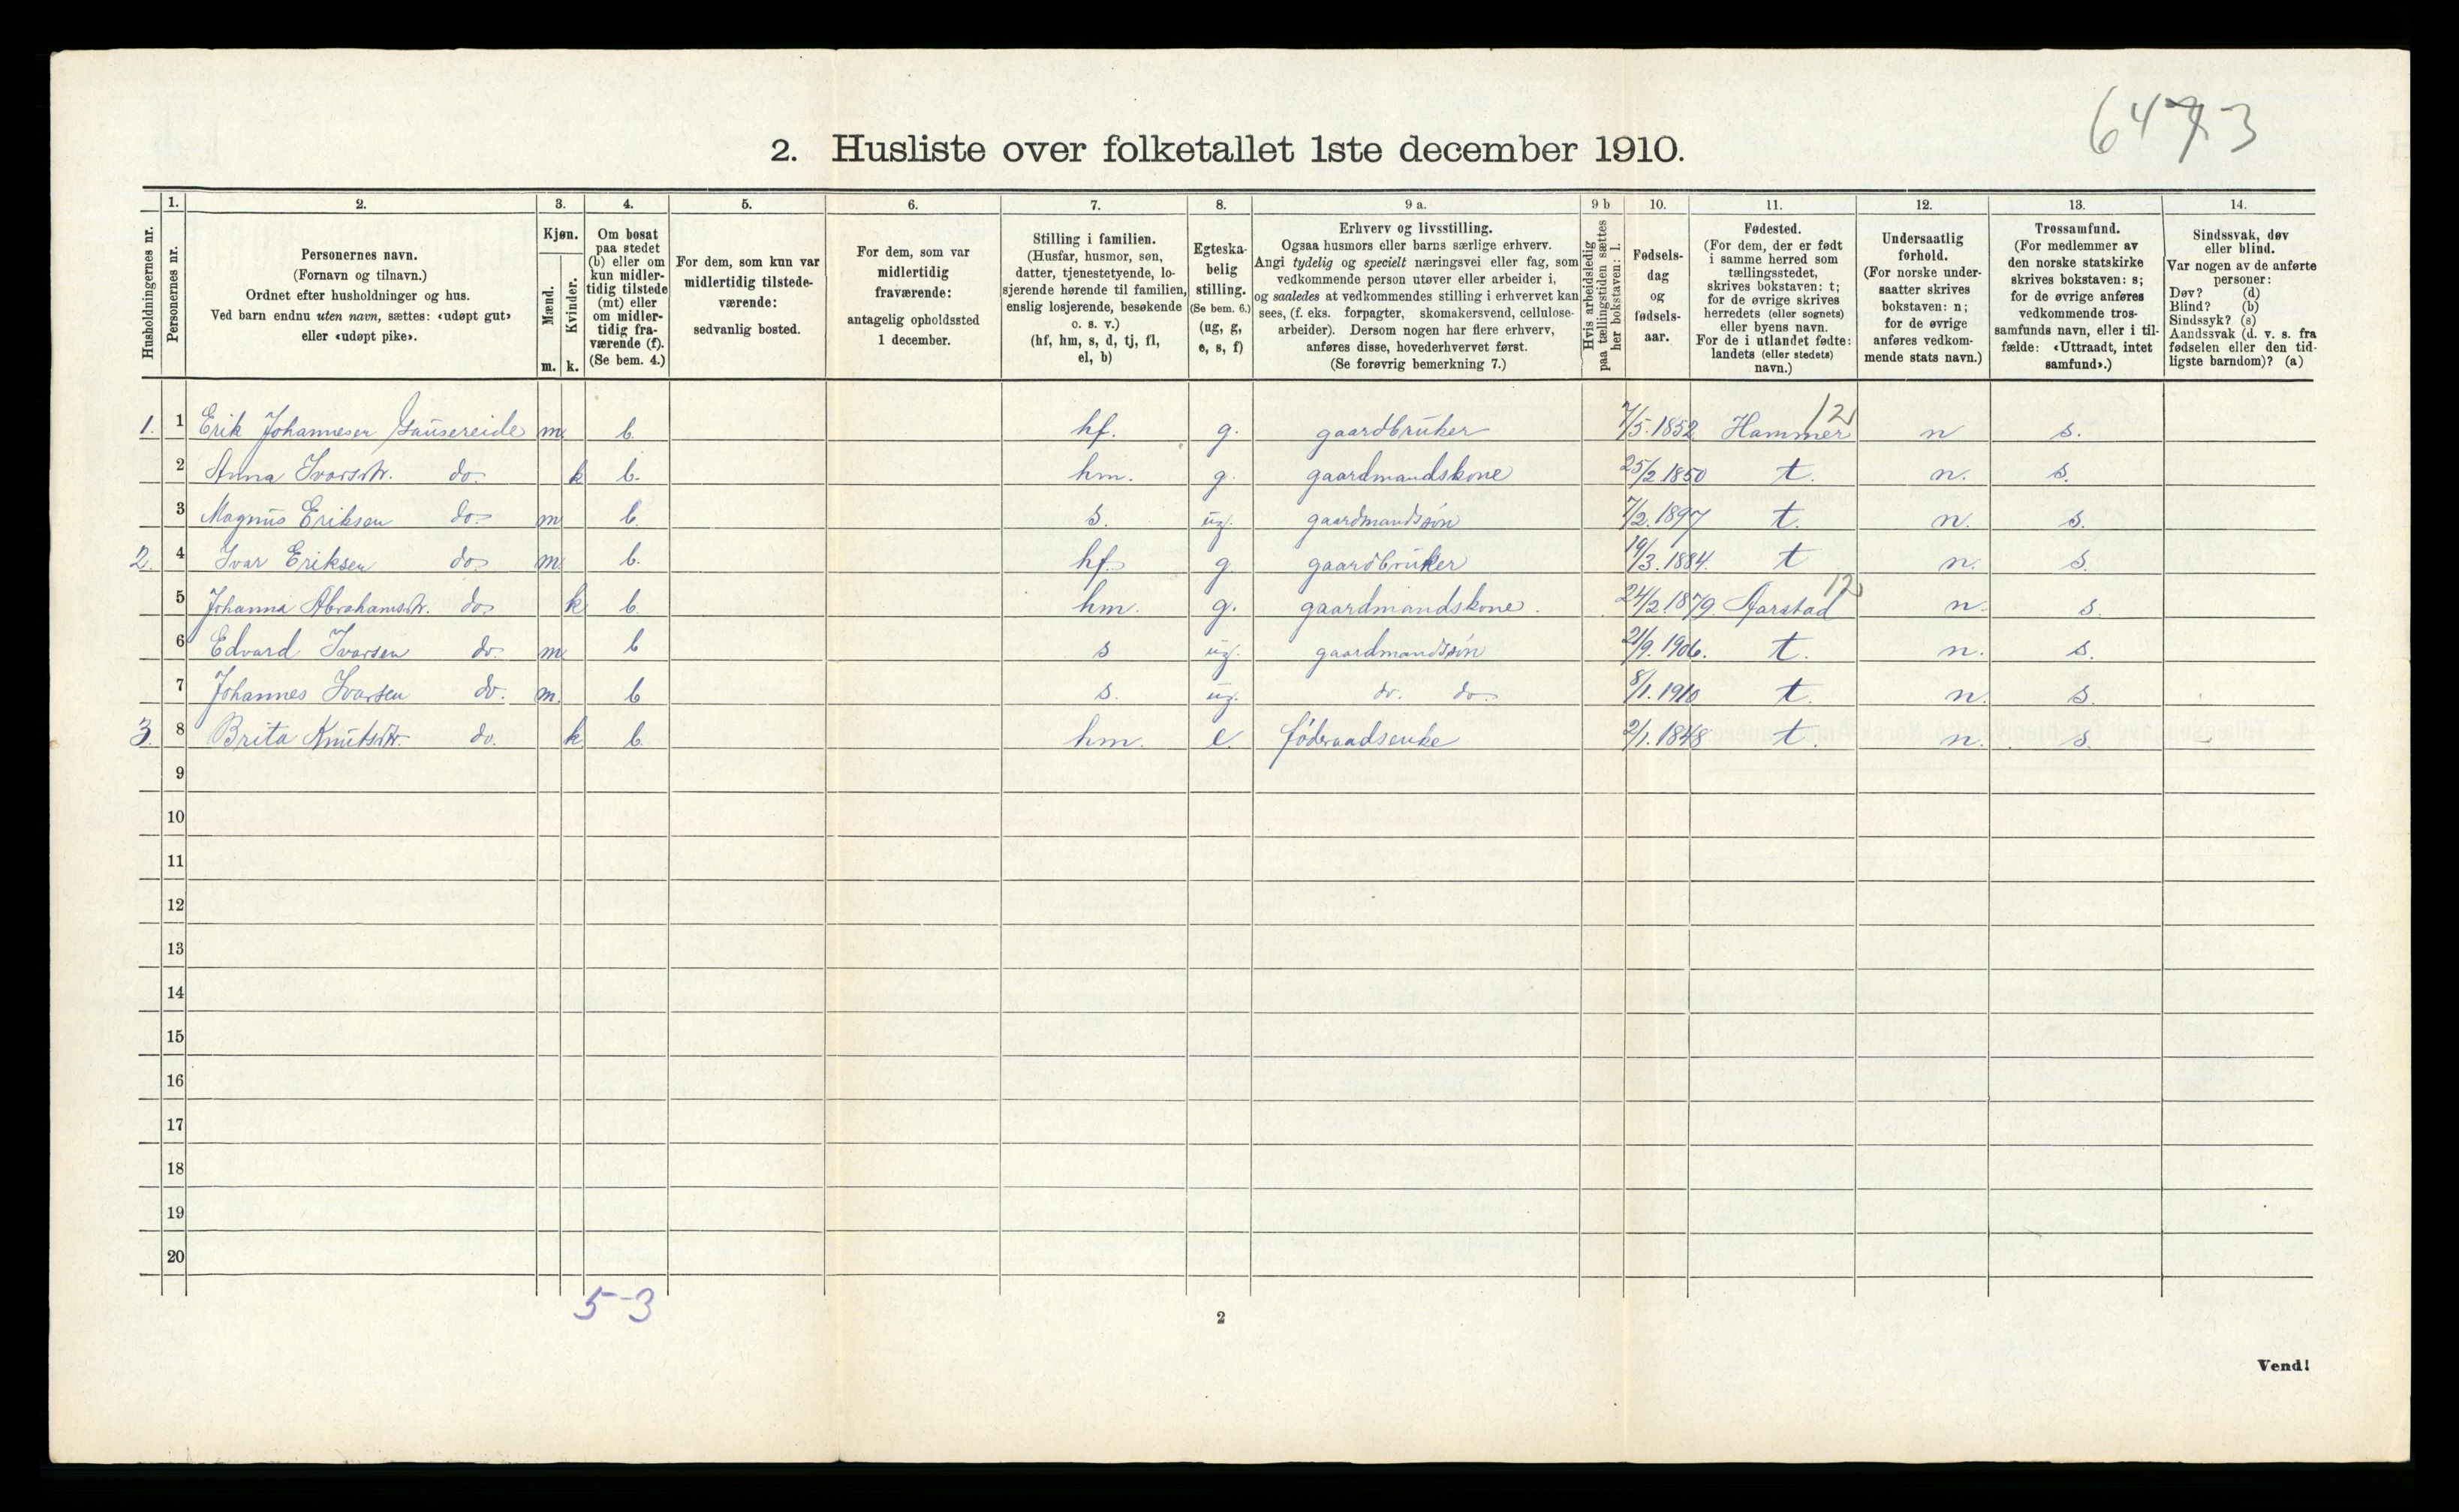 6473
2. Husliste over folketallet 1ste december 1910.
Husholdningernes nr.
1. Personernes nr.
2. Personernes navn. (Fornavn og tilnavn.) Ordnet efter husholdninger og hus. Ved barn endnu uten navn, sættes: «udøpt gut» eller «udøpt pike».
3. Kjøn. Mænd. m. Kvinder. k.
4. Om bosat paa stedet (b) eller om kun midlertidig tilstede (mt) eller om midlertidig fraværende (f). (Se bem. 4.)
5. For dem, som kun var midlertidig tilstedeværende: sedvanlig bosted.
6. For dem, som var midlertidig fraværende: antagelig opholdssted 1 december.
7. Stilling i familien. (Husfar, husmor, søn, datter, tjenestetyende, losjerende hørende til familien, enslig losjerende, besøkende o. s. v.) (hf, hm, s, d, tj, fl, el, b)
8. Egteskabelig stilling. (Se bem. 6.) (ug, g, e, s, f)
9 a. Erhverv og livsstilling. Ogsaa husmors eller barns særlige erhverv. Angi tydelig og specielt næringsvei eller fag, som vedkommende person utøver eller arbeider i, og saaledes at vedkommendes stilling i erhvervet kan sees, (f. eks. forpagter, skomakersvend, cellulosearbeider). Dersom nogen har flere erhverv, anføres disse, hovederhvervet først. (Se forøvrig bemerkning 7.)
9 b Hvis arbeidsledig paa tællingstiden sættes her bokstaven: l.
10. Fødselsdag og fødselsaar.
11. Fødested. (For dem, der er født i samme herred som tællingsstedet, skrives bokstaven: t; for de øvrige skrives herredets (eller sognets) eller byens navn. For de i utlandet fødte: landets (eller stedets) navn.)
12. Undersaatlig forhold. (For norske undersaatter skrives bokstaven: n; for de øvrige anføres vedkommende stats navn.)
13. Trossamfund. (For medlemmer av den norske statskirke skrives bokstaven: s; for de øvrige anføres vedkommende trossamfunds navn, eller i tilfælde: «Uttraadt, intet samfund».)
14. Sindssvak, døv eller blind. Var nogen av de anførte personer: Døv? (d) Blind? (b) Sindssyk? (s) Aandssvak (d. v. s. fra fødselen eller den tidligste barndom)? (a)
1. 1 Erik Johannesen Gausereide m b. hf. g. gaardbruker 7/5.1852 Hammer 12 n s.
2 Anna Ivarsdtr. do. k b. hm. g. gaardmandskone 25/2 1850 t. n. s.
3 Magnus Eriksen do. m b. s. ug. gaardmandssøn 7/2.1897 t. n. s.
2. 4 Ivar Eriksen do. m b. hf. g. gaardbruker 19/3.1884. t n. s.
5 Johanna Abrahamsdtr. do. k b. hm. g. gaardmandskone. 24/2.1879. Aarstad 12 n. s.
6 Edvard Ivarsen do. m b s ug. gaardmandssøn 21/9.1906. t. n. s.
7 Johannes Ivarsen do. m. b s. ug. do. do. 8/1.1910 t. n. s.
3. 8 Brita Knutsdtr. do. k b. hm. e. føderaadsenke 2/1.1848 t. n. s.
9
10
11
12
13
14
15
16
17
18
19
20
5-3
2
Vend!